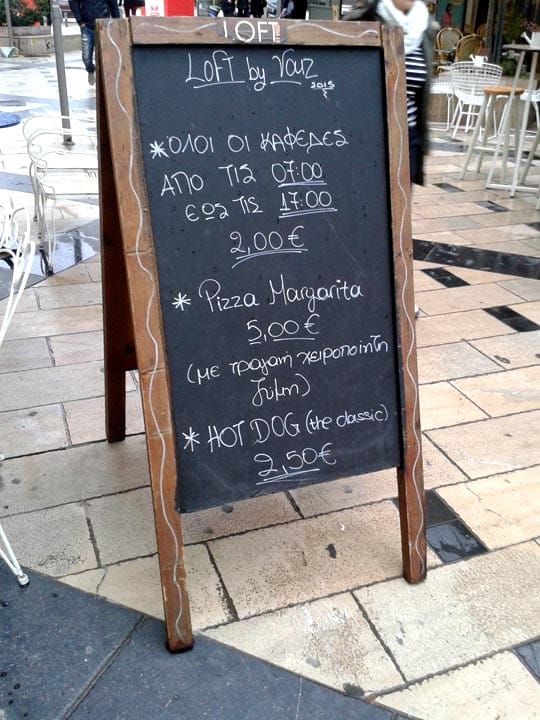 LOFT
LOFT by Vouz
2015
* ΌΛΟΙ ΟΙ ΚΑΦΕΔΕΣ
ΑΠΟ ΤΙΣ 07:00
ΕΩΣ ΤΙΣ 17:00
2,00 €
* Pizza Margarita
5,00 €
(με τραγανή χειροποίητη
ζύμη)
* HOT DOG (the classic)
2,50 €